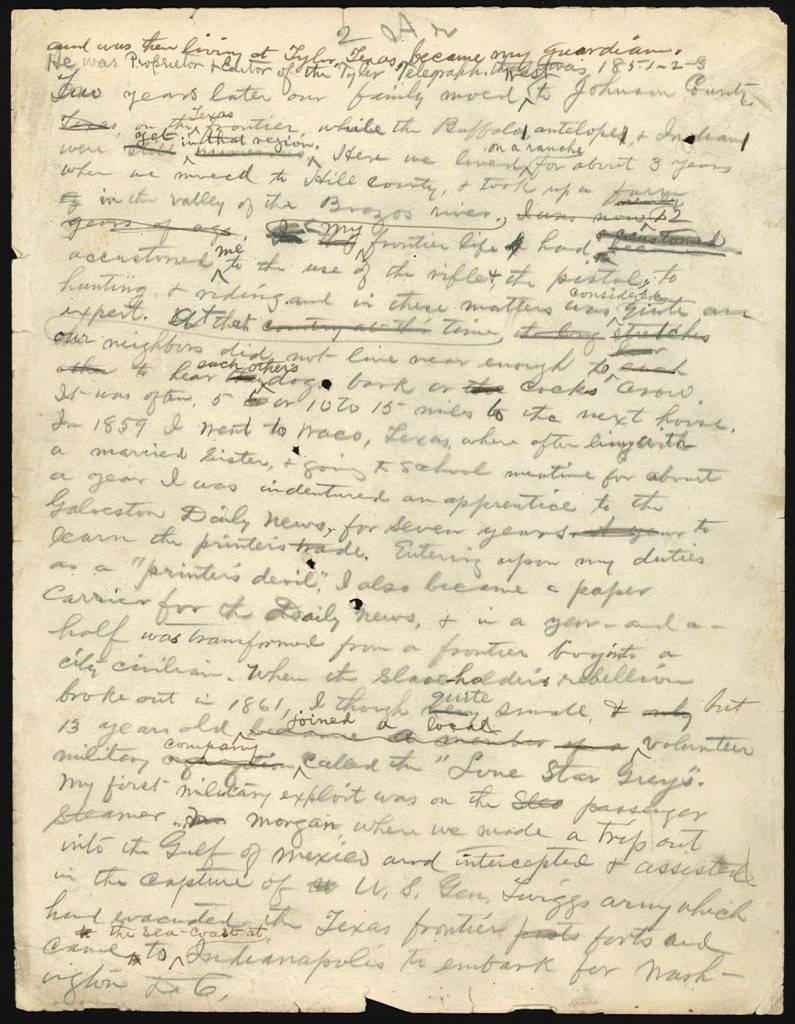 2
and was then living at Tyler, Texas, became my guardian.
He was Proprietor & Editor of the Tyler Telegraph. that was 1851-2-3
Two years later our family moved west to Johnson County,
Texas, on the Texas frontier, while the Buffalo, antelope, & Indian
were still yet in that region. Here we lived on a ranche for about 3 years
when we moved to Hill county, & took up a farm
in the valley of the Brazos river. I was now 12
years of age. My frontier life had accustomed
accustomed me to the use of the rifle & the pistol, to
hunting & riding and in these matters was considered quite an
expert. At that country at this time, stretches
our neighbors did not live near enough to each
other to hear each others dogs bark or the cocks crow
It was often 5 6 or 10 to 15 miles to the next house.
In 1859 I went to Waco, Texas, where after living with
a married sister, & going to school meantime for about
a year I was indentured an apprentice to the
Galveston Daily News, for seven years A year to
learn the printers trade. Entering upon my duties
as a "printer's devil," I also became a paper
carrier for the Daily News, & in a year-and-a-
half was transformed from a frontier boy into a
city civilian. When the slave-holder's rebellion
broke out in 1861, I though very quite small & only but
13 years old became a member of a joined a local volunteer
military company called the "Lone Star Greys".
My first military exploit was on the passenger
steamer Morgan, where we made a trip out
into the Gulf of Mexico and intercepted & assisted
in the capture of U. S. Gen. Twiggs army which
had evacuated the Texas frontier posts forts and
came to the sea-coast at, Indianapolis to embark for Wash-
ington D. C.